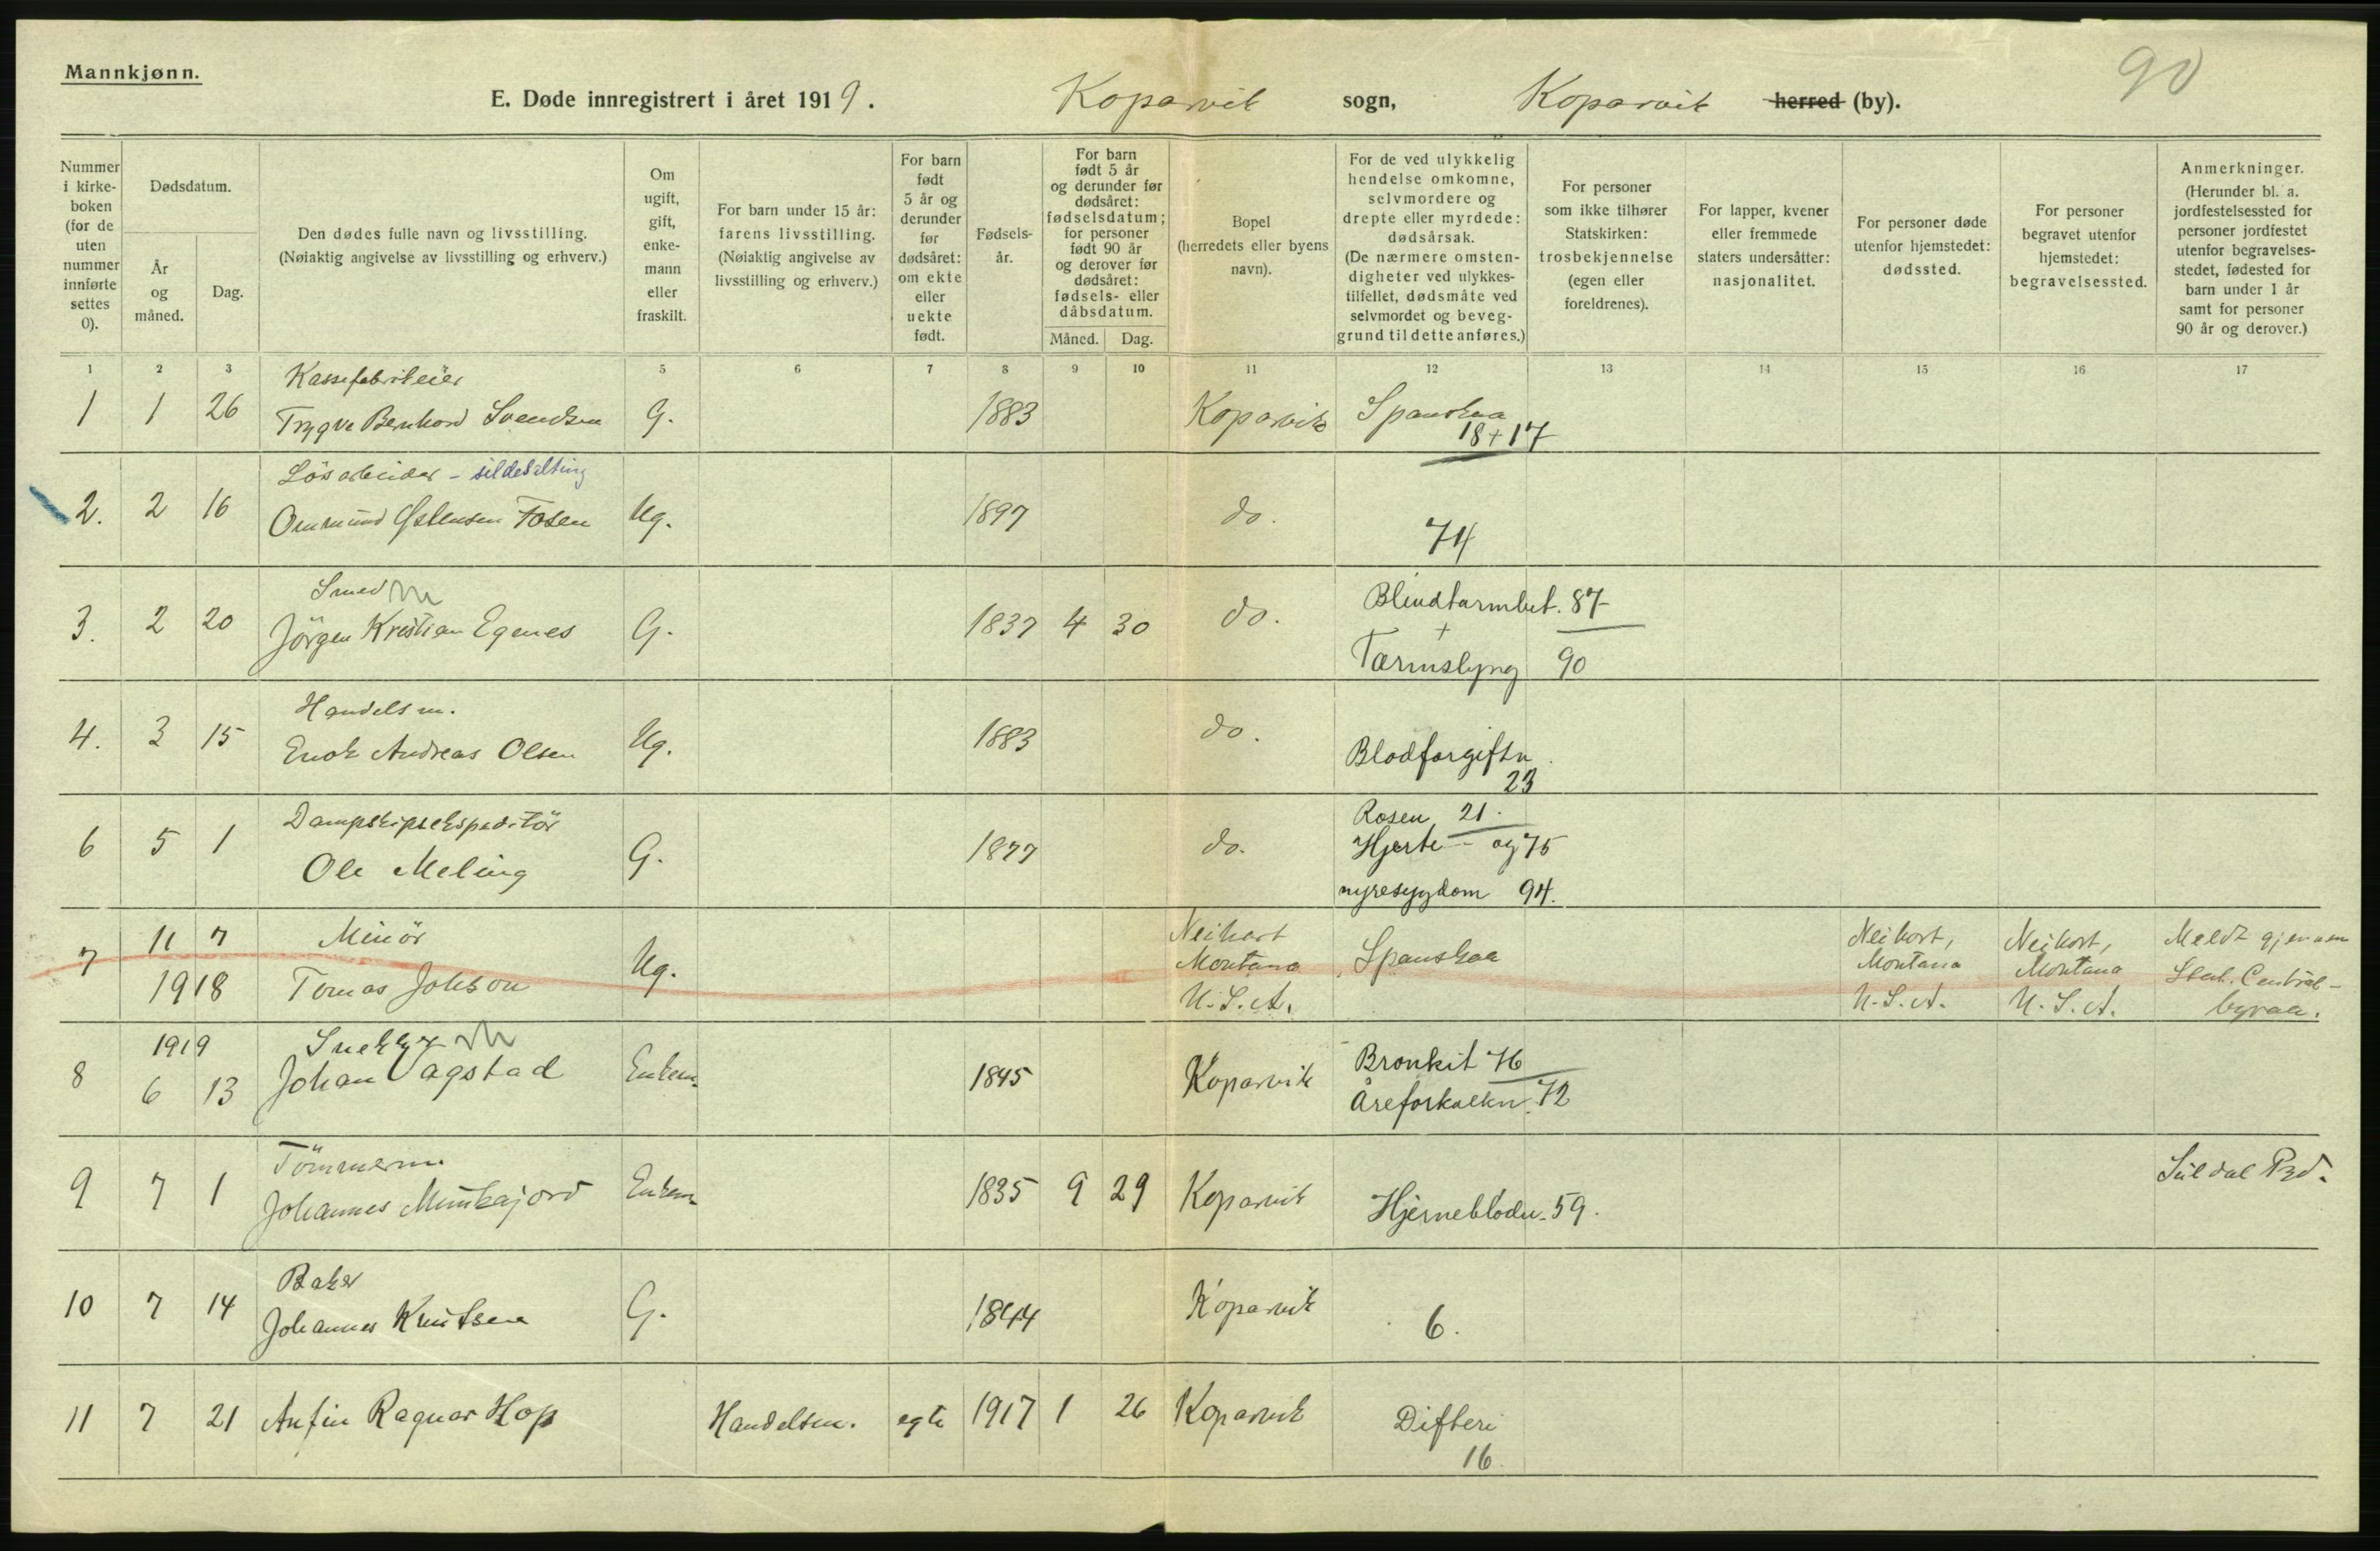 Mannkjønn.
90
E. Døde innregistrert i året 1919. Koparvik sogn, Koparvik herred (by).
Nummer i kirke-boken (for de uten nummer innførte settes 0).
Dødsdatum.
År og måned.
Dag.
Den dødes fulle navn og livsstilling. (Nøiaktig angivelse av livsstilling og erhverv.)
Om ugift, gift, enke-mann eller fraskilt.
For barn under 15 år: farens livsstilling. (Nøiaktig angivelse av livsstilling og erhverv.)
For barn født 5 år og derunder før dødsåret: om ekte eller uekte født.
Fødsels-år.
For barn født 5 år og derunder før dødsåret: fødselsdatum; for personer født 90 år og derover før dødsåret: fødsels- eller dåbsdatum.
Måned. Dag.
Bopel (herredets eller byens navn).
For de ved ulykkelig hendelse omkomne, selvmordere og drepte eller myrdede: dødsårsak. (De nærmere omsten-digheter ved ulykkes-tilfellet, dødsmåte ved selvmordet og beveg-grund til dette anføres.)
For personer som ikke tilhører Statskirken: trosbekjennelse (egen eller foreldrenes).
For lapper, kvener eller fremmede staters undersåtter: nasjonalitet.
For personer døde utenfor hjemstedet: dødssted.
For personer begravet utenfor hjemstedet: begravelsessted.
Anmerkninger. (Herunder bl. a. jordfestelsessted for personer jordfestet utenfor begravelses-stedet, fødested for barn under 1 år samt for personer 90 år og derover.)
1 2 3 5 6 7 8 9 10 11 12 13 14 15 16 17
Kassefabrikeier
1 1 26 Trygve Bernhard Svendsen G. 1883 Koparvik Spanskaa
18+17
Løsarbeider - sildesalting
2. 2 16 Ommund Østensen Fosen Ug. 1897 do.
74
Smed
3. 2 20 Jörgen Kristian Egenes G. 1837 4 30 do. Blindtarmbet. 87
+
Tarmslyng 90
Handelsm.
4. 3 15 Enok Andreas Olsen Ug. 1883 do. Blodforgiftn.
23
Dampskipsekspeditör
6 5 1 Ole Meling G. 1877 do. Rosen 21.
Hjerte- og 75
nyresygdom 94.
7 11 7 Minör
1918 Tomas Johson Ug. Neihart Montana U.S.A. Spanskaa Neihart, Montana U.S.A. Neihart, Montana U.S.A. Meldt gjennem Stat. Centralbyraa.
1919 Snekker
8 6 13 Johan Vagstad Enkem. 1845 Koparvik Bronkit 76
Åreforkalkn. 72
Tömmerm.
9 7 1 Johannes Munkajord Enkem 1835 9 29 Koparvik Hjerneblodn. 59. Suldal Pgd.
Baker
10 7 14 Johannes Knutsen G. 1844 Koparvik 6.
11 7 21 Anfin Ragnar Hop Handelsm. egte 1917 1 26 Koparvik Difteri
16.